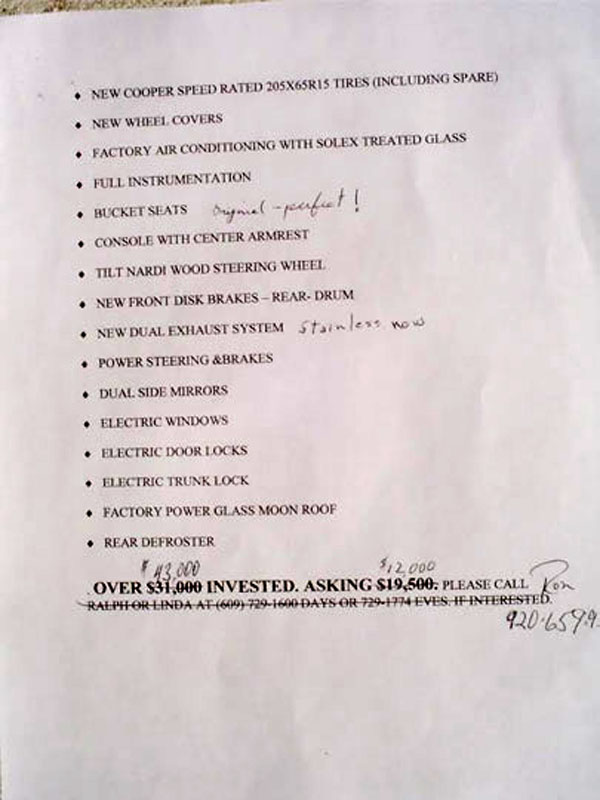 ♦ NEW COOPER SPEED RATED 205X65R15 TIRES (INCLUDING SPARE)
♦ NEW WHEEL COVERS
♦ FACTORY AIR CONDITIONING WITH SOLEX TREATED GLASS
♦ FULL INSTRUMENTATION
♦ BUCKET SEATS Original - perfect!
♦ CONSOLE WITH CENTER ARMREST
♦ TILT NARDI WOOD STEERING WHEEL
♦ NEW FRONT DISK BRAKES – REAR- DRUM
♦ NEW DUAL EXHAUST SYSTEM Stainless now
♦ POWER STEERING &BRAKES
♦ DUAL SIDE MIRRORS
♦ ELECTRIC WINDOWS
♦ ELECTRIC DOOR LOCKS
♦ ELECTRIC TRUNK LOCK
♦ FACTORY POWER GLASS MOON ROOF
♦ REAR DEFROSTER
$43,000 $12,000
. OVER $31,000 INVESTED. ASKING $19,500. PLEASE CALL Ron
RALPH OR LINDA AT (609) 729-1600 DAYS OR 729-1774 EVES. IF INTERESTED.
920-659-9